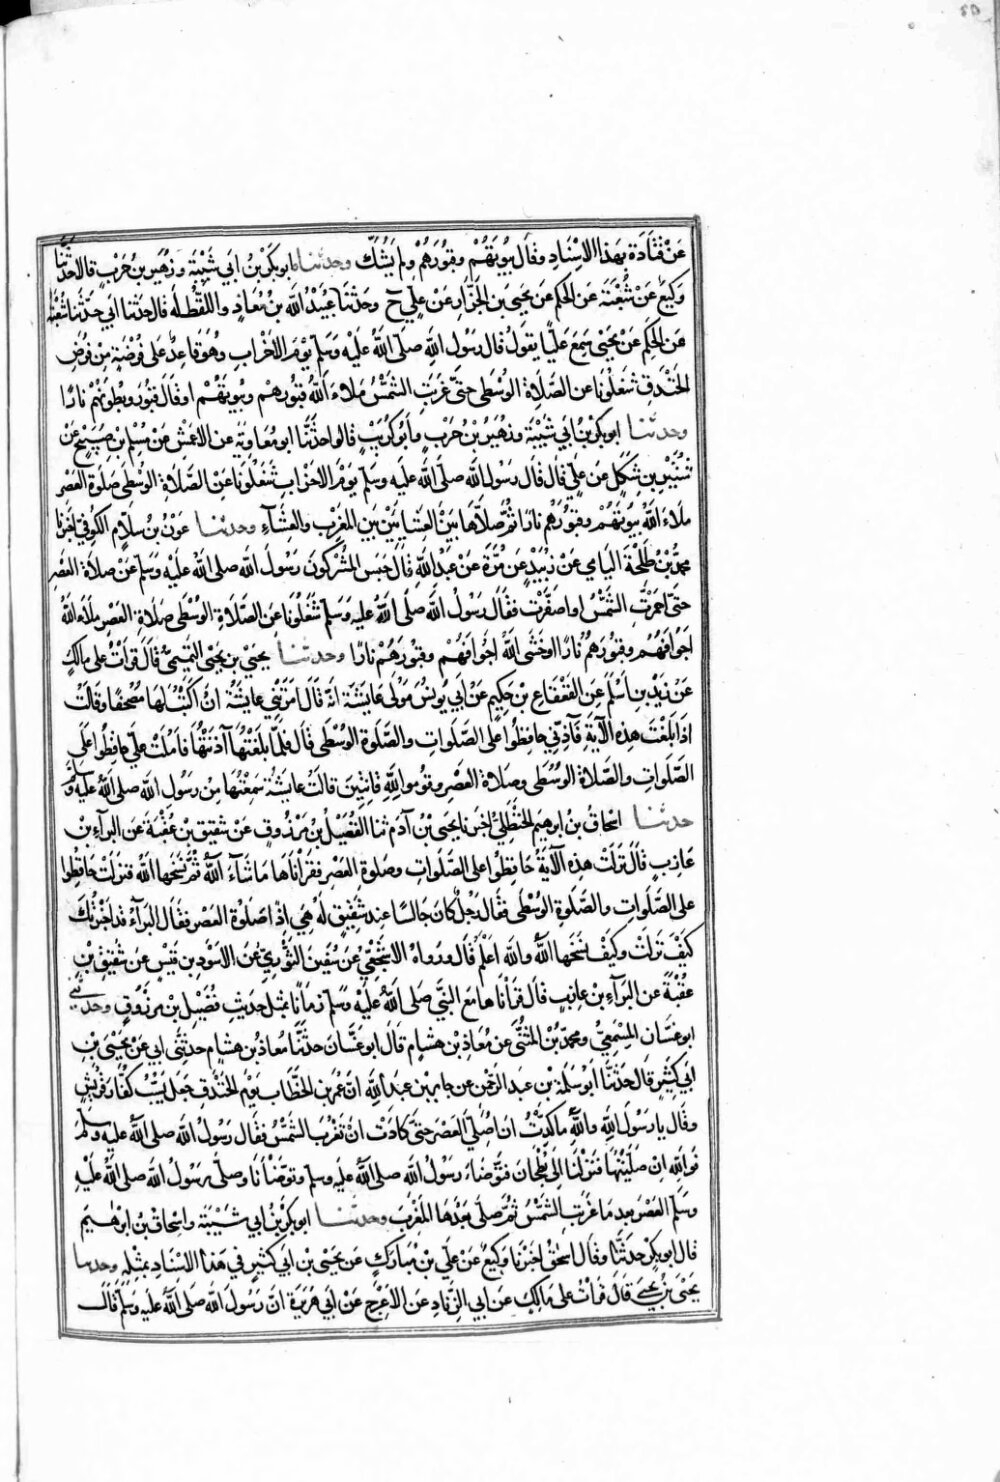 عَنْ قَتَادَةَ بِهَذَا الاِسْنَادِ وَقَالَ بُيُوتَهُمْ وَقُبُورَهُمْ وَلَمْ يَشُكَّ وحدثنا ابوبكر بن ابي شَيْبَةَ وزُهَيْرُ بنُ حَرْبٍ قالا حَدَّثَنَا
وَكِيعٌ عَنْ شُعْبَةَ عَنِ الحَكَمِ عَنْ يَحْيَى بنِ الجَزَّارِ عَنْ عَلِيٍّ ح وحَدَّثَنَا عُبَيْدُ اللَّهِ بنُ مُعَاذٍ واللَّفْظُ لَهُ قال حَدَّثَنَا أَبي حَدَّثَنَا شُعْبَةُ
عَنِ الحَكَمِ عَنْ يَحْيَى سَمِعَ عَلِيًّا يَقُولُ قَالَ رَسُولُ اللَّهِ صَلَّى اللَّهُ عَلَيْهِ وَسَلَّمَ يَوْمَ الاَحْزَابِ وَهُوَ قَاعِدٌ عَلى فُرْضَةٍ مِنْ فُرَضِ
الخَنْدَقِ شَغَلُونَا عَنِ الصَّلَاةِ الوُسْطَى حَتَّى غَرَبَتِ الشَّمْسُ مَلَاءَ اللَّهُ قبُورهم وبُيُوتَهُمْ اوقال قُبُورَ وبُطُونَهُمْ نَارًا
وحدثنا ابوبكر بنُ ابي شَيْبَةَ وزهَيْرُ بْنُ حَرْبٍ وأَبُو كُرَيْبٍ قَالُوا حَدَّثَنَا ابومُعَاوِيَةَ عن الاعْمَشِ عَنْ مُسْلِمِ بن صُبَيْحٍ عَنْ
شُتَيْرِ بنِ شَكَلٍ عَن عَلِيٍّ قَالَ قَالَ رَسُولُ الله صَلَّى اللهُ عَلَيهِ وسَلم يَوْمَ الاَحْزَابِ شَغَلُونَا عَنِ الصَّلَاةِ الوُسْطَى صَلَوةِ العَصْرِ
مَلَاءَ اللَّهُ بُيُوتَهُمْ وقُبُورَهُمْ نَارًا ثُمَّ صَلَّاهَا بَيْنَ العِشَاءَيْنِ بَيْنَ المَغْرِبِ والعِشَاءِ وحدثنا عَوْنُ بنُ سَلَّامٍ الكُوفيّ اخبرنا
محمَّدُ بنُ طَلْحَةَ اليَامي عَنْ زُبَيْدٍ عَن مُرَّةَ عَنْ عَبْدِ اللَّهِ قَالَ حَبَسَ المُشْرِكُونَ رَسُولَ الله صَلى اللهُ عَلَيْهِ وَسَلَّمَ عَنْ صلَاةِ العَصْرِ
حَتَّى احْمَرَّتِ الشَّمْسُ اواصْفَرَّتْ فَقَالَ رَسُولُ الله صلّى اللَّهُ عَليهِ وسَلَّمَ شَغَلُونَا عَنِ الصَّلَاةِ الوُسْطَى صَلَاةِ العَصْرِ مَلَاءَ اللَّهُ
اجْوَافَهُمْ وقُبُورَهُمْ نَارًا اوحَشَى اللَّهُ أجْوَافَهُمْ وقُبُورَهُمْ نَارًا وحدثنا يَحْيَى بن يَحْيَى التَّمِيمِيُّ قَالَ قَرَأْتُ عَلى مَالِكٍ
عَنْ زَيْدِ بنِ أَسْلَمَ عَنِ القَعْقَاعِ بْنِ حَكِيمٍ عَنْ أَبي يُونُسَ مَوْلَى عَايشَةَ انَّهُ قَالَ امَرَتْنِي عَايشَةُ انْ اكْتُبَ لَهَا مُصْحَفًا وقَالَتْ
اذَا بَلَغْتَ هَذِهِ الآيَةَ فَآذِنِّي حَافِظُوا عَلَى الصَّلَوَاتِ والصَّلَوةِ الوُسْطَى قَالَ فَلَمَّا بَلَغْتُهَا آذَنْتُهَا فَأَمْلَتْ عَلَيَّ حَافِظُوا عَلَى
الصَّلَوَاتِ والصَّلَاةِ الوُسْطَى وصَلاةِ العَصْرِ وقُومُوا لِلَّهِ قَانِتِينَ قَالَتْ عَايشَةُ سَمِعْتُهَا مِنْ رَسُولِ الله صَلى اللهُ عَلَيهِ وسلم
حدثنا اسْحَاقُ بن ابرهيم الحَنْظَلِيُّ اخبرنا يَحْيَى بْنُ آدَمَ ثنا الفُضَيْلُ بنُ مَرْزُوقٍ عَنْ شَقِيقِ بن عُقْبَةَ عَنِ البَرَآءِ بْنِ
عَازِبٍ قَالَ نَزَلَتْ هَذِهِ الآيَةُ حَافِظُوا عَلى الصَّلَوَاتِ وصَلَوةِ العَصْرِ فَقَرَأْنَاهَا مَا شَآءَ اللَّهُ ثُمَّ نَسَخَهَا اللَّهُ فَنَزَلَتْ حَافِظُوا
عَلى الصَّلَوَاتِ والصَّلَوةِ الوُسْطَى فَقَالَ رَجُلٌ كَانَ جَالِسًا عِنْدَ شَقِيقٍ لَهُ هِيَ اِذًا صَلَوةُ العَصْرِ فَقَالَ البَرَآءُ قَد اخْبَرْتُكَ
كَيْفَ نَزَلَتْ وكَيْفَ نَسَخَهَا اللَّهُ والله اعْلَمُ قَالَ ورَوَاهُ الاشْجَعِيُّ عَنْ سُفْيَنَ الثَّوْرِيِّ عَنِ الاسْوَدِ بنِ قَيْسٍ عَنْ شَقِيقِ بْنِ
عُقْبَةَ عَنِ البَرَآءِ بن عَازِبٍ قَالَ قَرَأْنَاهَا مَعَ النَّبِيِّ صَلى اللَّهُ عَلَيْهِ وسَلَّم زمَانًا بمِثْلِ حَدِيثِ فُضَيْلِ بنِ مَرْزُوقٍ وحدثني
ابوغَسَّان المِسْمَعِيُّ ومحمَّدُ بْنُ المُثَنَّى عَن مُعَاذِ بن هِشَامٍ قَالَ ابوغَسَّانَ حَدَّثَنَا مُعَاذُ بن هِشَامٍ حدَّثَنِي ابي عَنْ يَحْيَى بْنِ
ابي كَثِيرٍ قَالَ حَدَّثَنَا أبُو سَلَمَةَ بْنُ عَبدِ الرَّحْمَنِ عن جابِرِ بْنِ عَبْدِ اللَّهِ انَّ عُمَرَ بنَ الخَطَّابِ يَوْمَ الخَنْدَقِ جَعَلَ يَسُبُّ كُفَّارَ قُرَيْشٍ
وقَال يا رَسُولَ اللهِ واللَّهِ مَا كِدْتُ انْ أُصَلِّيَ العَصْرَ حَتَّى كَادَتْ انْ تَغْرُبَ الشَّمْسُ فَقَالَ رَسُولُ الله صلى اللهُ عَلَيهِ وسلم
فَوَاللهِ اِنْ صَلَّيْتُهَا فَنَزَلْنَا إلى بُطْحَانَ فَتَوَضَّاءَ رَسُولُ الله صلى اللَّهُ عَلَيهِ وسلم وتَوَضَّأْنَا وصَلَّى رَسُولُ الله صَلى اللهُ عَلَيْهِ
وسَلم العَصْرَ بعدِ مَا غَرَبَتِ الشَّمْسُ ثُمَّ صَلَّى بَعْدَهَا المَغْرِبَ وحدثنا ابوبَكْرِ بْنُ ابي شَيْبَةَ واسْحَاقُ بْنُ ابرَهِيمَ
قال ابوبكر حَدَّثَنَا وقَالَ اسحقُ اخبَرَنَا وَكِيعٌ عَنْ عَلِيِّ بْنِ مُبَارَكٍ عَن يَحْيَى بن ابي كَثِيرٍ في هَذَا الاسْنَادِ بمِثْلِهِ وحدثنا
يَحْيَى بْنُ يحيى قَالَ قَرَأْتُ عَلَى مَالِكٍ عَن ابي الزِّنَادِ عَنِ الاعْرَجِ عَنْ ابي هُرَيْرَةَ انَّ رَسُولَ الله صَلَّى اللهُ عَلَيهِ وسَلَّمَ قَالَ